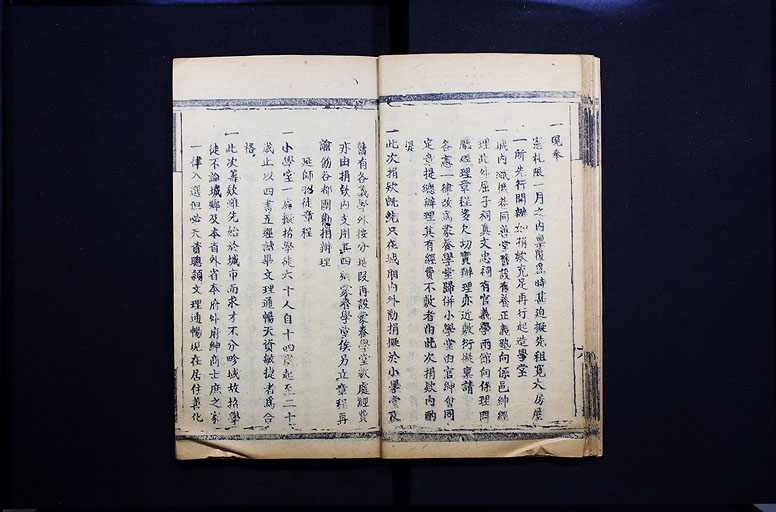 一現奉
憲札限一月之內稟覆爲時甚迫擬先租寬大房屋
一所先行開辦如捐欵充足再行起造學堂
一城內 機巷同善堂舊設有養正義塾向係邑紳經
理此外屈子祠真文忠祠有官義學兩館向係理問
廳經理章程多欠切實辦理亦近敷衍擬稟請
各憲一律改爲蒙養學堂歸併小學堂由官紳會同
定章提總辦理其有經費不敷者由此次捐欵內酌
提
一此次捐欵旣純只在城廂內外勸捐擬於小學堂及
舊有各義學外按分地段再設蒙養學堂數處經費
亦由捐欵內支用其四鄉蒙養學堂俟另立章程再
諭飭各都團勸捐辦理
延師招徒章程
一小學堂一廳擬招學徒六十人自十四歲起至二十
歲止以四書五經讀畢文理通暢天資敏捷者爲合
格
一此次籌欵雖先始於城市而求才不分畛域故招學
徒不論城鄉及本省外省本府外府紳商士庶之家
一律入選但必天資聰穎文理通暢現在居住善化